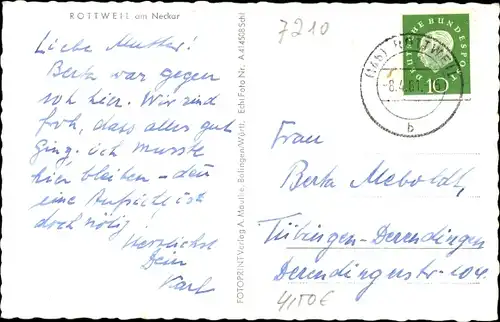 ROTTWEIL am Neckar
Liebe Mutter!
Berta war gegen
hier. Wir sind
froh, dass alles gut
ging. ich musste
hier bleiben – den
eine Aufsicht ist
doch nötig!
Herzlichst
Dein
Karl
FOTOPRINT Verlag A. Mauthe, Bölingen/Württ. Echt Foto Nr. A 414508 Schl
7210
(14b) ROTTWEIL
-8.4.61.
b
DEUTSCHE BUNDESPOST
10
Frau
Berta Meboldt,
Tübingen-Derendingen
Derendingerstr. 104.
4,50€